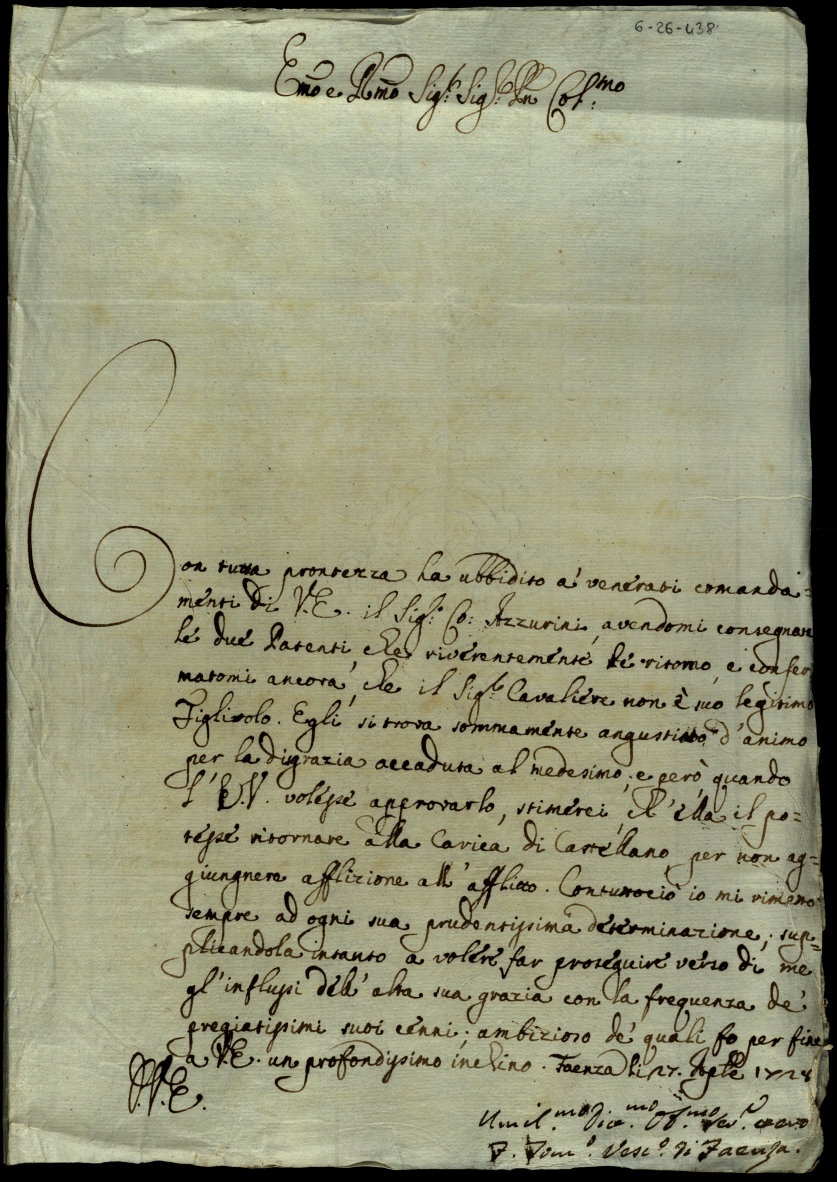 6-26-438
Emo e Rmo Sig.r Sig.r Pn Col.mo
Con tutta prontezza ha ubbidito a' venerati comanda=
menti di V.E. il Sig.r Co: Azzurini, avendomi consegnate
le due Patenti, che riverentemente le ritorno, e confer
matomi ancora, che il Sig.r Cavaliere non è suo legitimo
Figlivolo. Egli si trova sommamente angustiato d'animo
per la digrazia accaduta al medesimo, e però quando
l'E.V. volesse approvarlo, stimerei, ch'ella il po=
tesse ritornare alla Carica di Castellano, per non ag=
giungnere afflizione all'afflitto. Contuttociò io mi rimetto
sempre ad ogni sua prudentissima determinazione; sup=
plicandola intanto a volere far proseguire verso di me
gl'influssi dell'alta sua grazia con la frequenza de'
pregiatissimi suoi cenni; ambizioso de' quali fo per fine
a V.E. un profondissimo inchino. Faenza li 27. Aple 1728
V.E.
Umil.mo Div.mo Ob.mo Ser.e vero
T. Tom.o Vesc.o di Faenza.